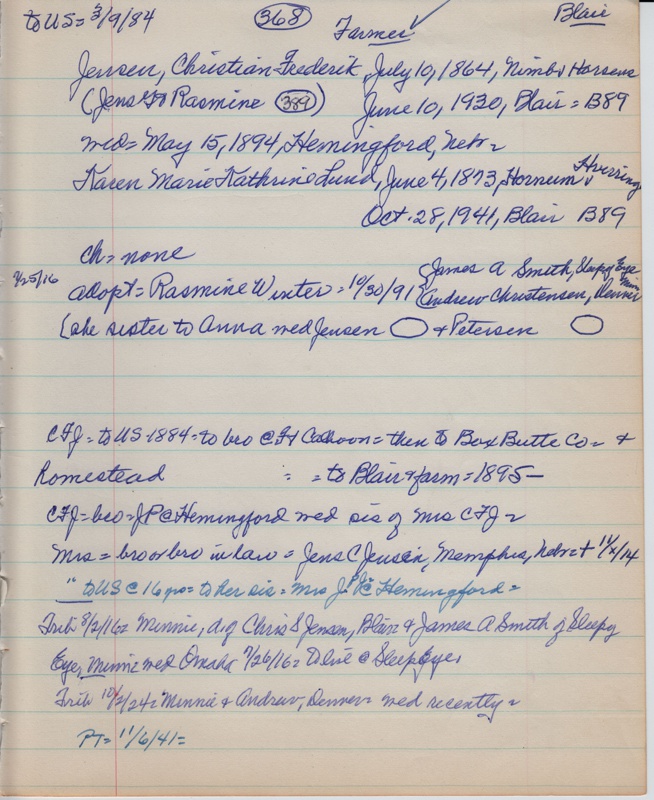 to US = 3/9/84 368 Farmer ✓ Blair
Jensen, Christian Frederik, July 10, 1864, Nimbs Horsens
(Jens & Rasmine 389) June 10, 1930, Blair = B89
wed = May 15, 1894, Hemingford, Nebr =
Karen Marie Kathrine Lund, June 4, 1873, Hornum, Hjorring
Oct. 28, 1941, Blair B89
ch = none
James A Smith, Sleepy Eye Minn
7/25/16 adopt = Rasmine Winter = 10/30/91? Andrew Christensen, Denver
(she sister to Anna wed Jensen & Petersen
CFJ = to US 1884 = to bro @ Ft Calhoun = then to Box Butte Co = +
Homestead = = to Blair & farm = 1895 -
CFJ = bro = JP @ Hemingford wed sis of Mrs CFJ =
Mrs = bro or bro in law = Jens C Jensen, Memphis, Nebr = + 11/x/14
" to US @ 16 yo = to her sis = Mrs J.P. @ Hemingford =
Trib 8/2/16 = Minnie, d. of Chris S Jensen, Blair & James A Smith of Sleepy
Eye, Minnie wed Omaha 7/26/16 = To live @ Sleep Eye,
Trib 10/2/24 = Minnie & Andrew, Denver = wed recently =
PT = 11/6/41 =